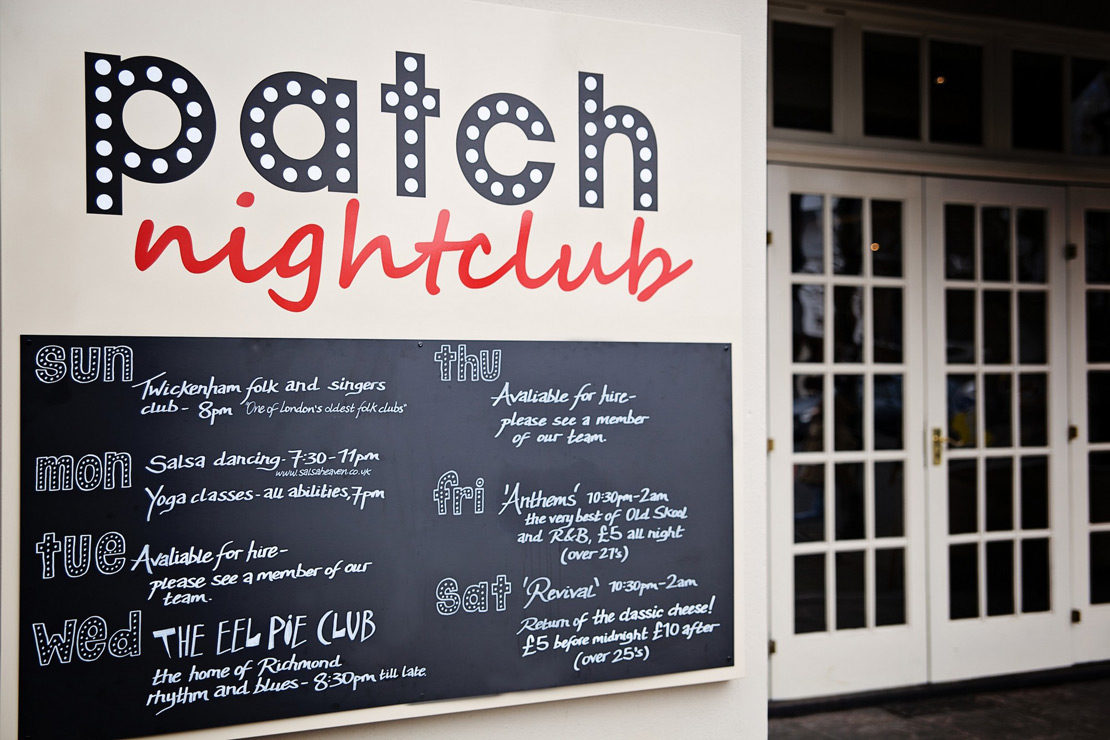 patch
nightclub
sun
Twickenham folk and singers
club - 8pm "One of London's oldest folk clubs"
mon
Salsa dancing - 7:30 - 11pm
www.salsaheaven.co.uk
Yoga classes - all abilities, 7pm
tue
Avaliable for hire -
please see a member of our
team.
wed
THE EEL PIE CLUB
the home of Richmond
rhythm and blues - 8:30pm till late.
thu
Avaliable for hire -
please see a member
of our team.
fri
'Anthems' 10:30pm - 2am
the very best of Old Skool
and R&B, £5 all night
(over 21's)
sat
'Revival' 10:30pm - 2am
Return of the classic cheese!
£5 before midnight £10 after
(over 25's)